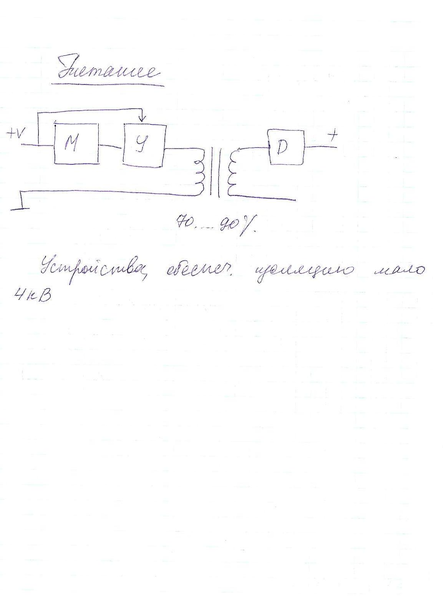 Питание
+V
М
У
D
+
70....90%.
Устройства, обеспеч. изоляцию мало
4кВ